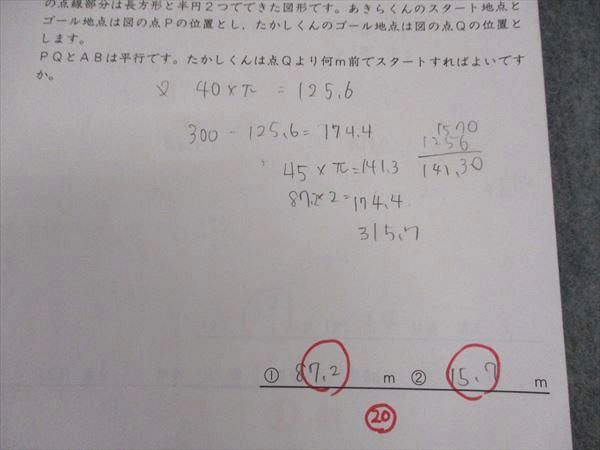 の点線部分は長方形と半円２つでできた図形です。あきらくんのスタート地点と
ゴール地点は図の点Ｐの位置とし，たかしくんのゴール地点は図の点Ｑの位置と
します。
ＰＱとＡＢは平行です。たかしくんは点Ｑより何ｍ前でスタートすればよいです
か。
40×π = 125.6
300 - 125.6 = 174.4
1570
1256
141.30
45 × π = 141.3
87.2 × 2 = 174.4
315.7
① 87.2 m ② 15.7 m
20